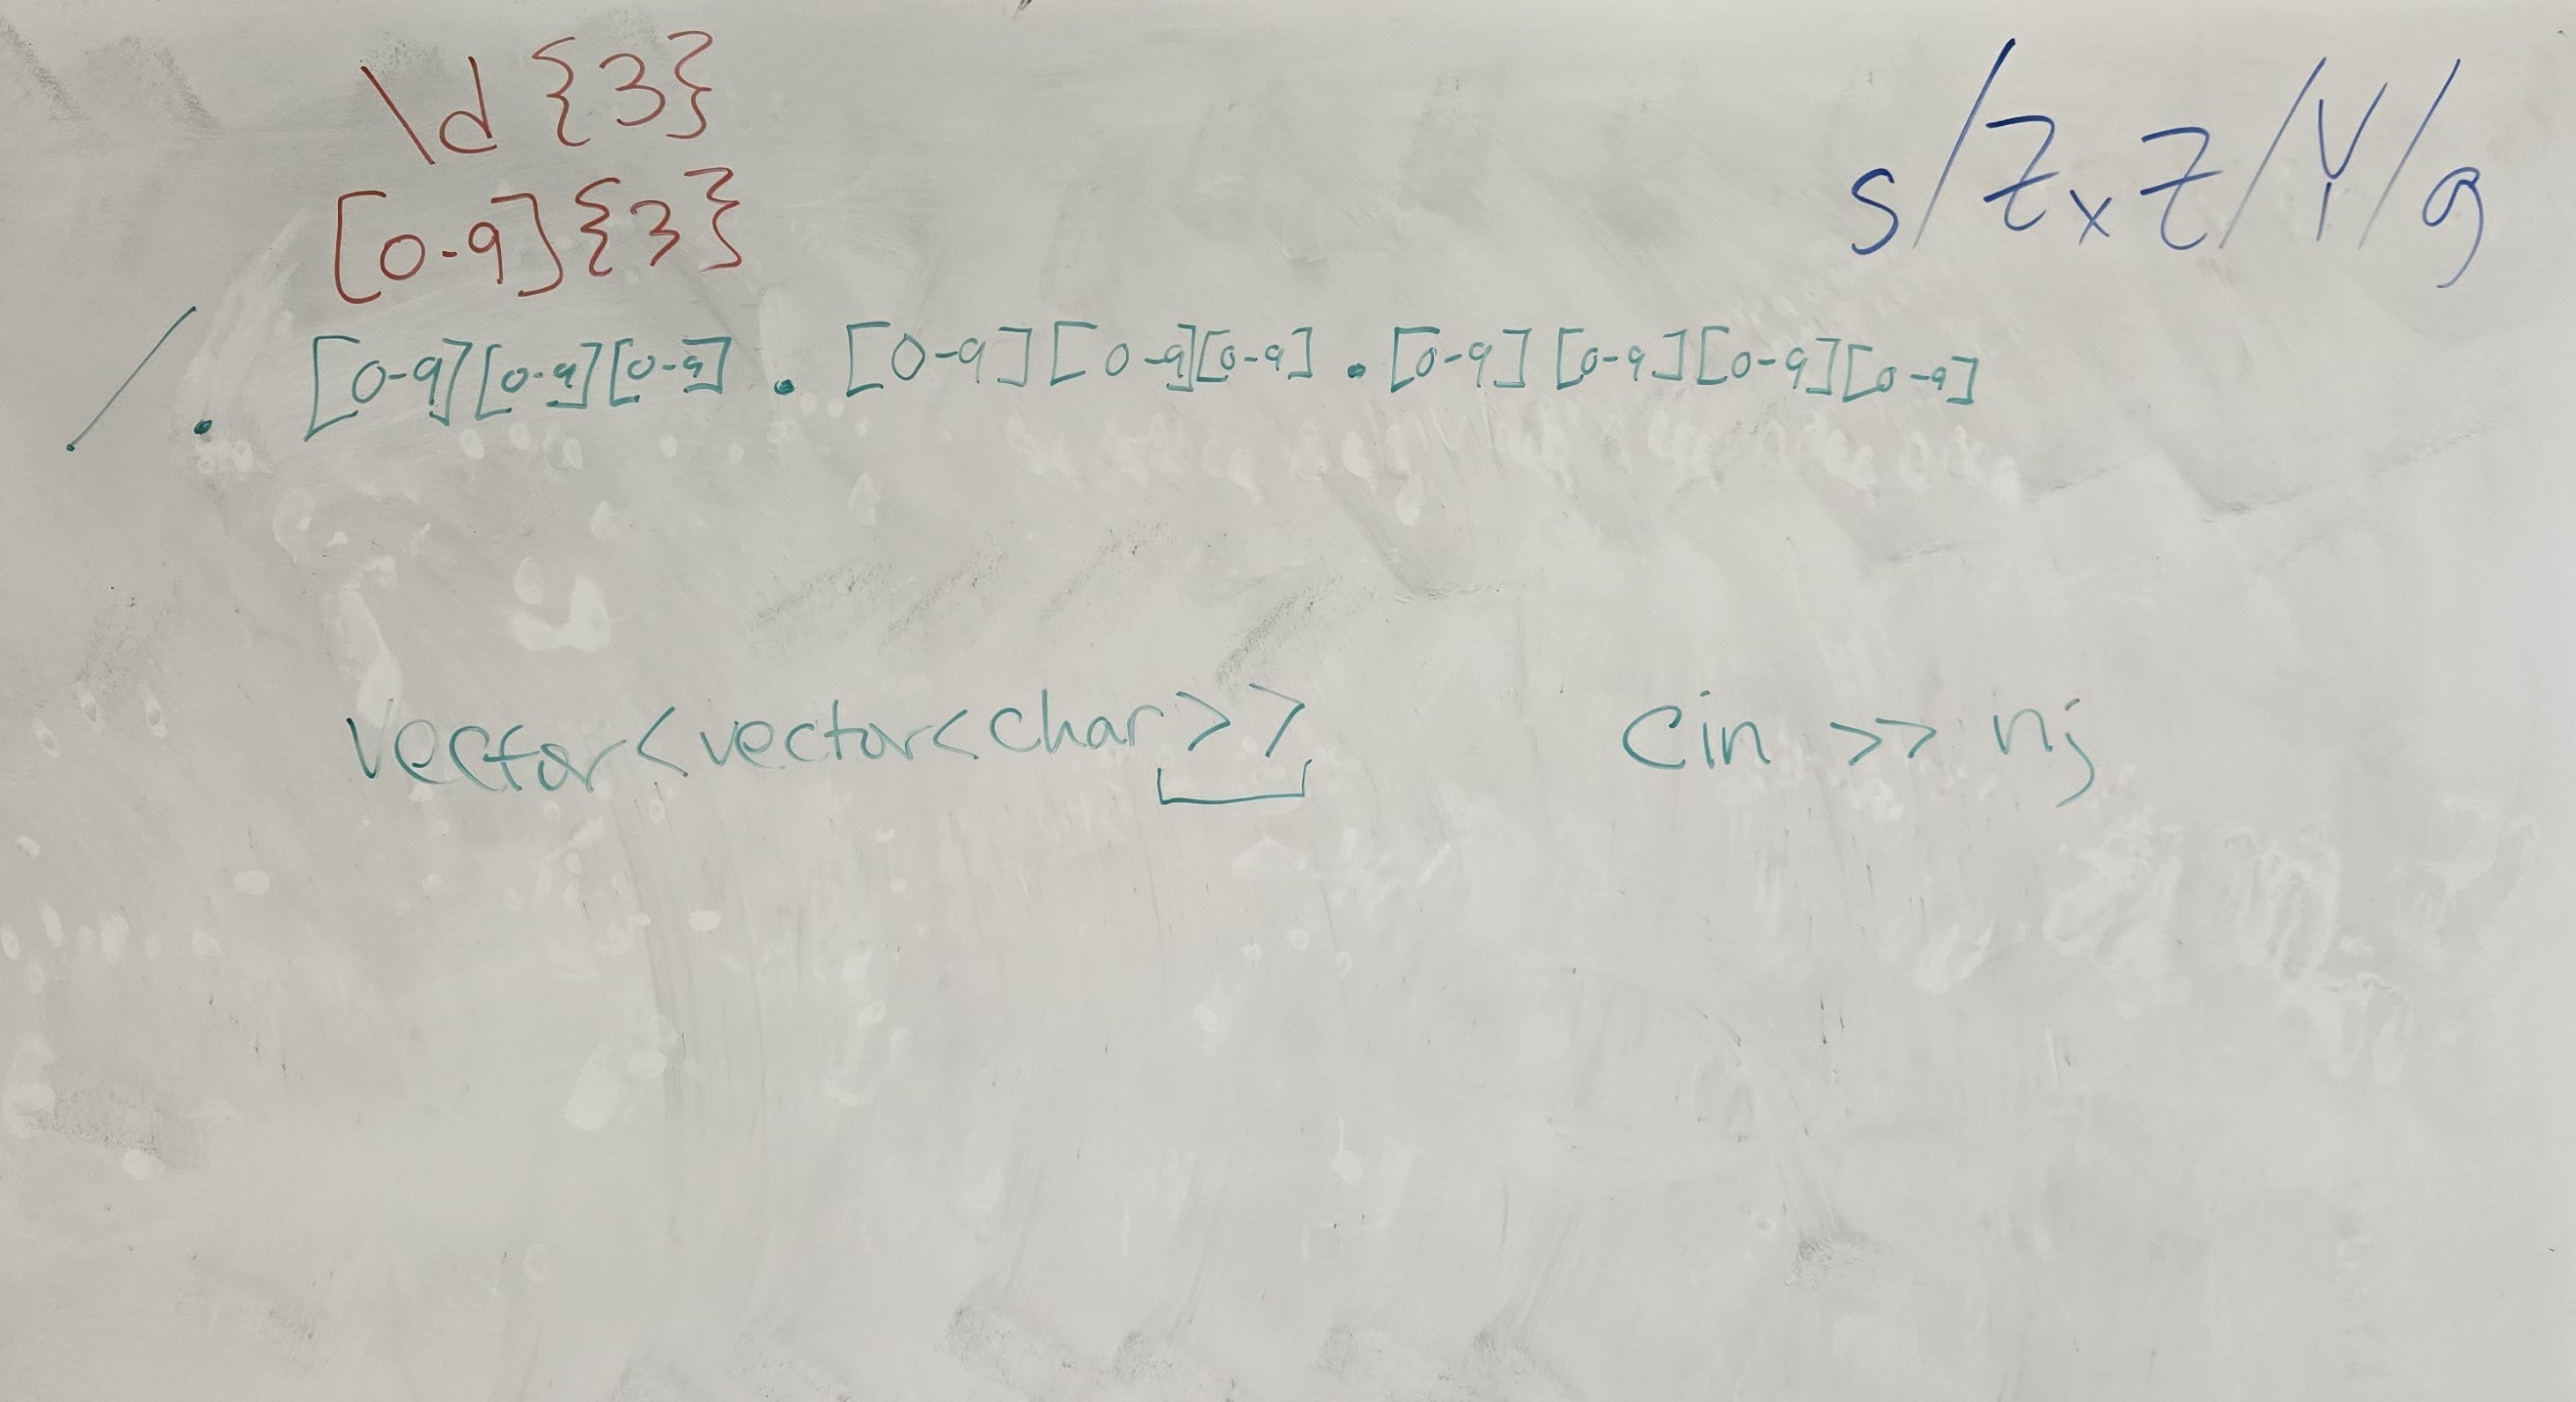 \d{3}
s/ZxZ/Y/g
[0-9]{3}
/. [0-9][0-9][0-9] . [0-9][0-9][0-9] . [0-9][0-9][0-9][0-9]
vector<vector<char>>
cin >> n;